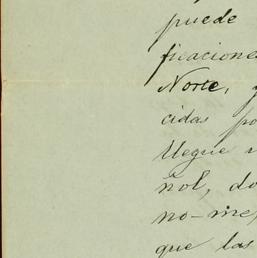 puede
ficaciones
Norte,
cidas po
llegue
ñol, do
no-me
que las